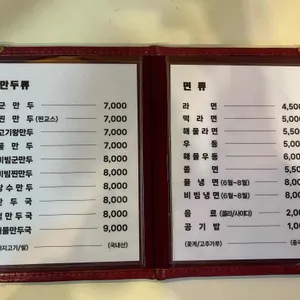 만두류
군 만 두 7,000
찐 만 두 (찐교스) 7,000
고기왕만두 7,000
물 만 두 7,000
비빔군만두 8,000
비빔찐만두 8,000
탕수만두 8,000
만 두 국 8,000
떡만두국 8,000
해물만두국 9,000
(돼지고기/쌀) (국내산)
면 류
라 면 4,50
떡 라 면 5,00
해물라면 5,50
우 동 5,00
해물우동 6,00
쫄 면 5,50
물 냉 면 (6월~8월) 8,00
비빔냉면 (6월~8월) 8,00
음 료 (콜라/사이다) 2,00
공 기 밥 1,00
(꽃게/고추가루)